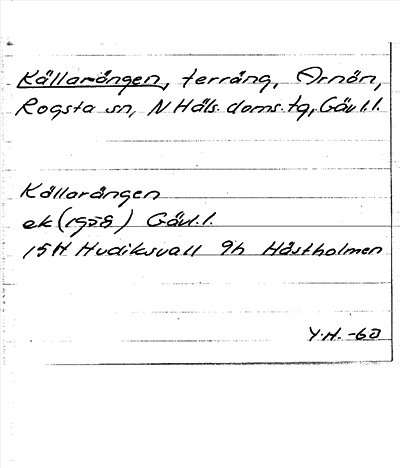 Källarängen, terräng, Arnön,
Rogsta sn, N Häls. doms. tg, Gävl. l.
Källarängen
ek (1958) Gävl. l.
15H Hudiksvall 9h Hästholmen
Y.H. -60